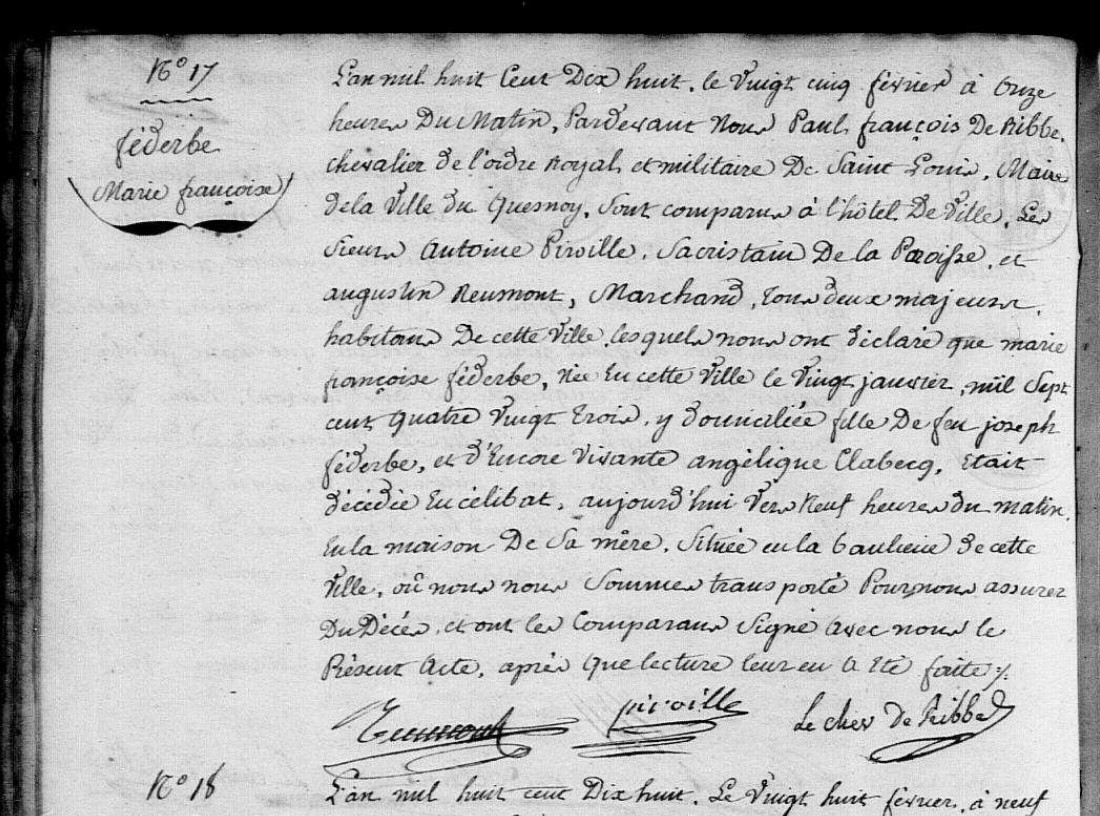 N° 17
féderbe
Marie françoise
L'an mil huit Cent Dix huit, le Vingt cinq février à Onze
heures Du Matin, Pardevant Nous Paul françois De Ribbe,
chevalier de l'ordre Royal et militaire De Saint Louis, Maire
dela Ville du Quesnoy, sont comparus à l'hôtel De Ville, Les
Sieurs Antoine Pirville, Sacristain De la Paroisse, et
augustin Reumont, Marchand, tous deux majeurs,
habitans De cette Ville, lesquels nous ont déclaré que marie
françoise féderbe, Née En cette Ville le Vingt janvier, mil Sept
cent Quatre Vingt Trois, y domiciliée fille De feu joseph
féderbe, et d'Encore Vivante angélique Clabecq, Etait
décédée En célibat, aujourd'hui Vers Neuf heures du matin,
En la maison De Sa mère, Située en la banlieue de cette
Ville, où nous nous Sommes transporté Pour nous assurer
Du Décès, et ont les Comparans Signé avec nous le
Présent Acte, après Que lecture leur en a Eté faite ;/.
Reumont
piroille
Le cher De Ribbe
N° 18
L'an mil huit cent Dix huit, Le Vingt huit février, à neuf